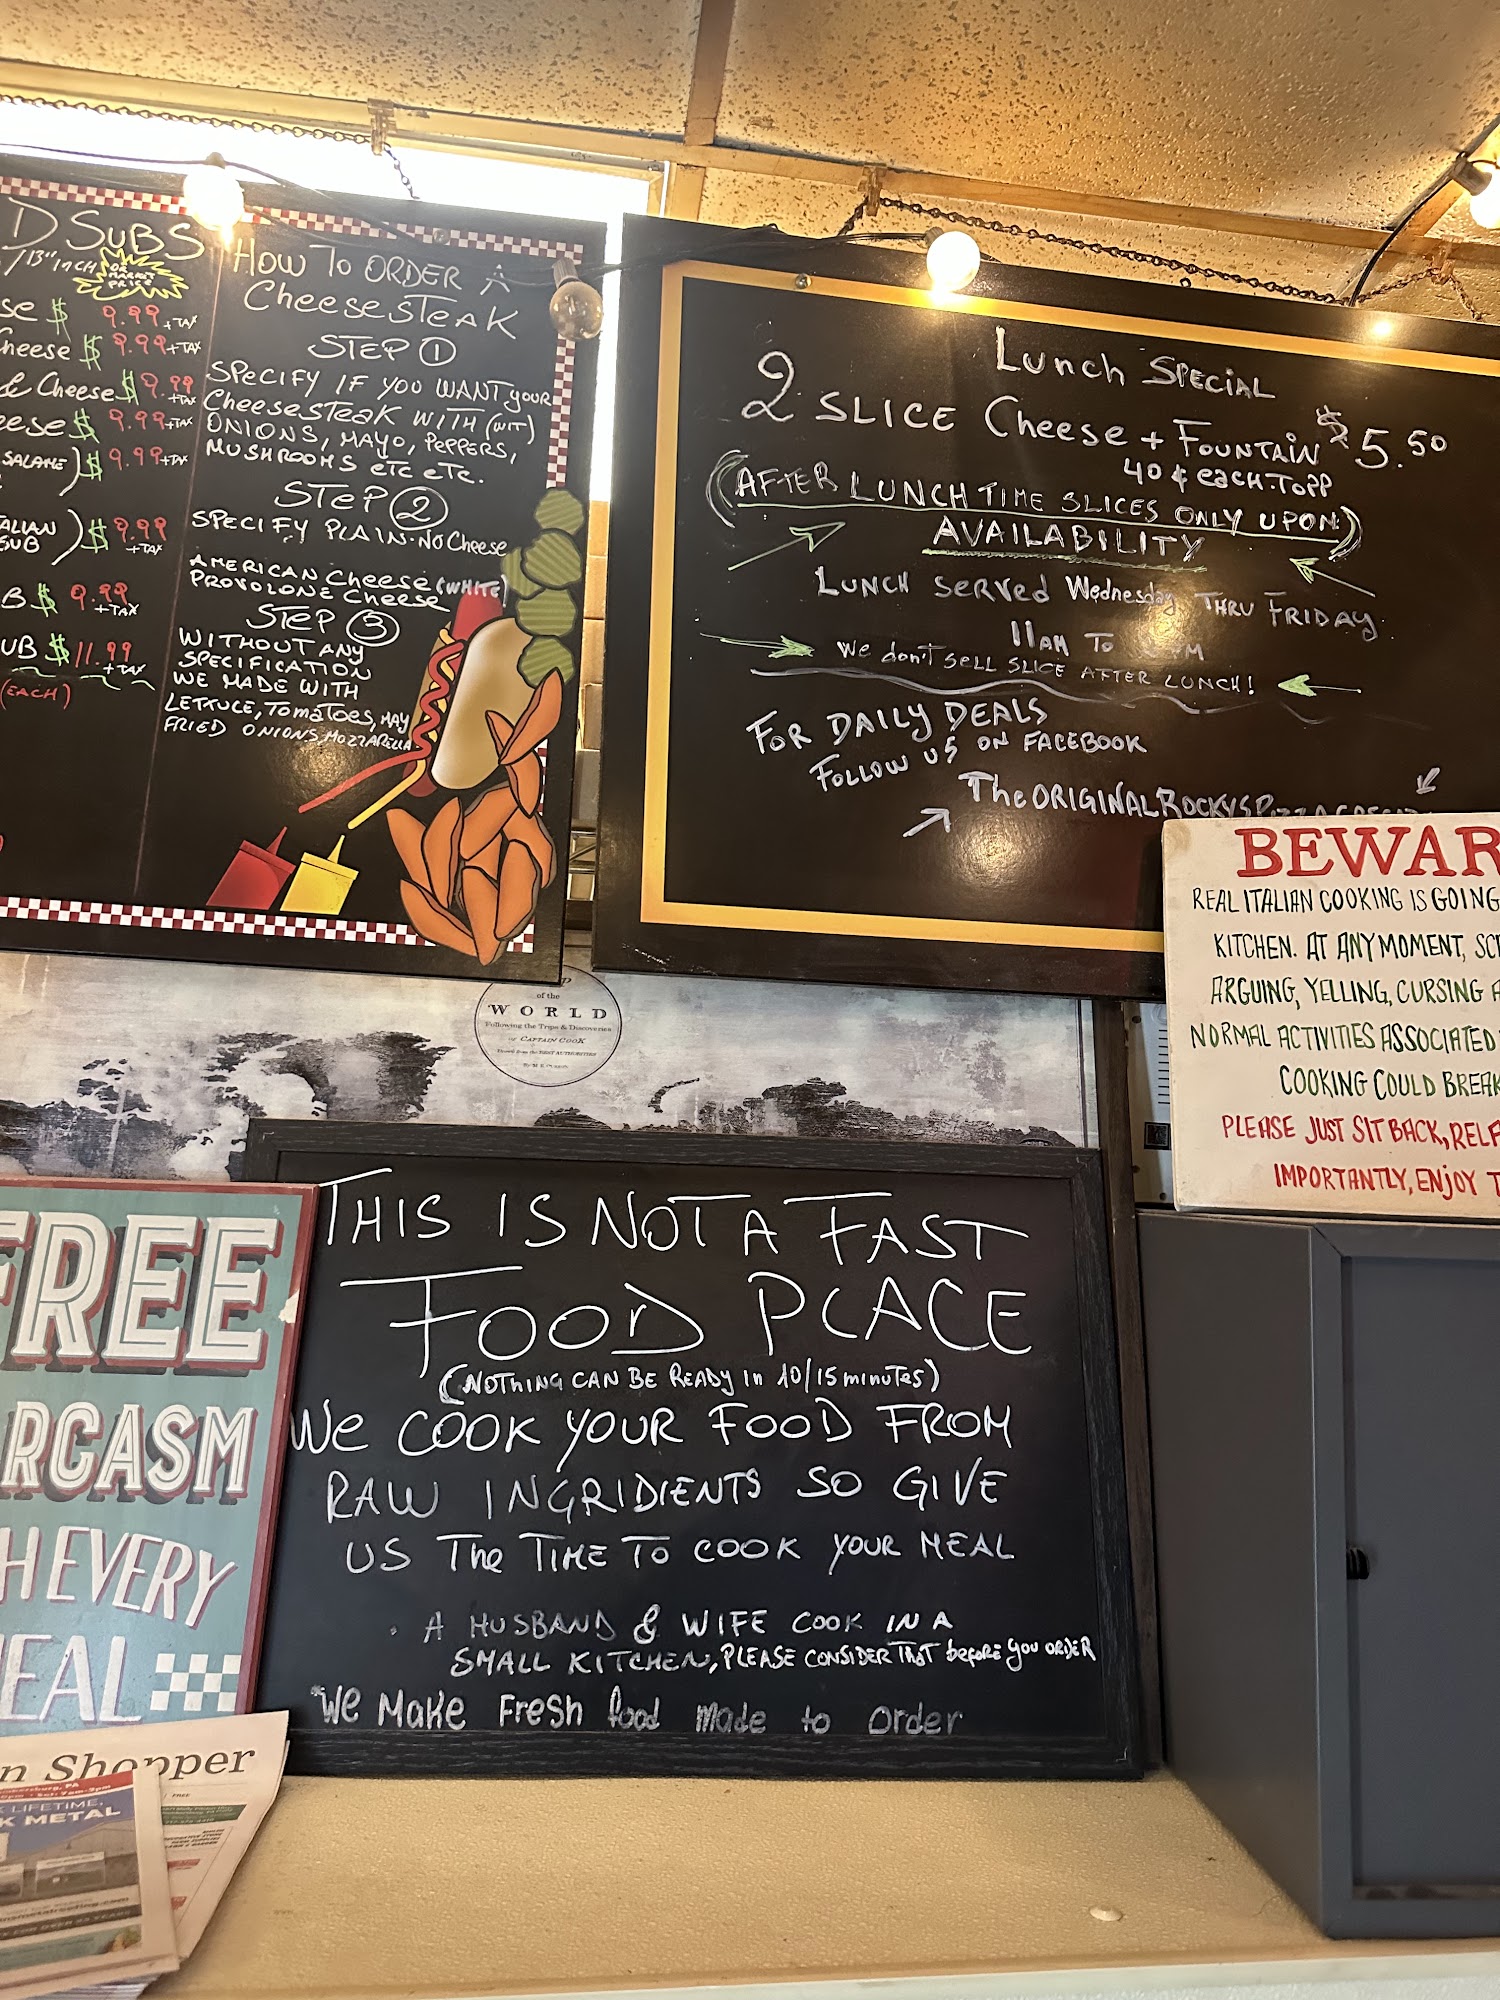 D SUBS
/13" INCH
OR MARKET PRICE
SE $ 9.99 +TAX
Cheese $ 9.99 +TAX
& Cheese $ 9.99 +TAX
eese $ 9.99 +TAX
SALAME) $ 9.99 +TAX
ALIAN
SUB) $ 9.99 +TAX
B $ 9.99 +TAX
UB $ 11.99 +TAX
(EACH)
HOW TO ORDER A
CheesesTEAK
STEP 1
SPECIFY IF YOU WANT your
CheesesTEAK WITH (WIT)
ONIONS, MAYO, PEPPERS,
MUSHROOMS eTC eTC.
STeP 2
SPECIFY PLAIN-NO Cheese
AMERICAN Cheese (WHITE)
PROVOLONE Cheese
STEP 3
WITHOUT ANY
SPECIFICATION
WE MADE WITH
LETTUCE, TOMATOES, MAY
FRIED ONIONS, MOZZARELLA
Lunch SPECIAL
2 SLICE Cheese + FOUNTAIN $5.50
40¢ eACH-TOPP
(AFTER LUNCH TIME SLICES ONLY UPON)
AVAILABILITY
LUNCH SERVED Wednesday THRU FRIDAY
11AM TO M
We don't SELL SLICE AFTER LUNCH!
FOR DAILY DEALS
FOLLOW US ON FACEBOOK
The ORIGINAL ROCKYS
BEWAR
REAL ITALIAN COOKING IS GOING
KITCHEN. AT ANY MOMENT, SC
ARGUING, YELLING, CURSING A
NORMAL ACTIVITIES ASSOCIATED
COOKING COULD BREAK
PLEASE JUST SIT BACK, RELA
IMPORTANTLY, ENJOY T
of the
WORLD
Following the Trips & Discoveries
of CAPTAIN COOK
THIS IS NOT A FAST
FOOD PLACE
(NOTHING CAN BE READY IN 10/15 minutes)
We COOK YOUR FOOD FROM
RAW INGRIDIENTS SO GIVE
US The TIME TO COOK YOUR MEAL
. A HUSBAND & WIFE COOK IN A
SMALL KITCHEN, PLEASE CONSIDER THAT before you ORDER
*We Make Fresh food made to order
FREE
RCASM
H EVERY
EAL
n Shopper
FREE
K LIFETIME.
K METAL